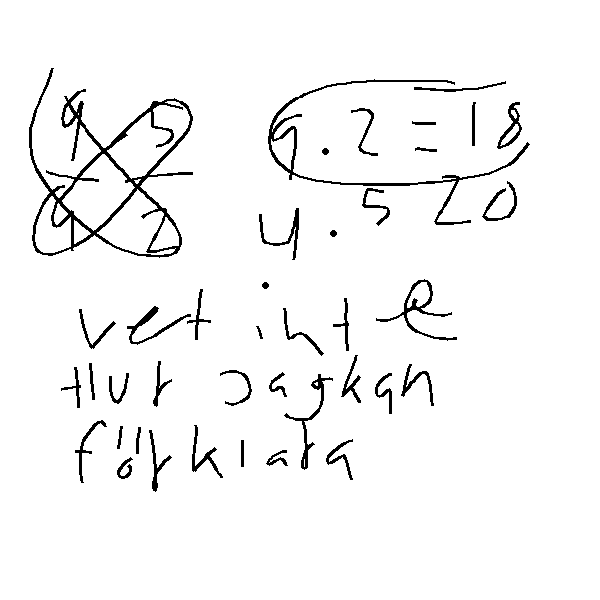 9 5 9 . 2 = 18
4 2 4 . 5 20
vet inte
Hur Jag kan
förklara